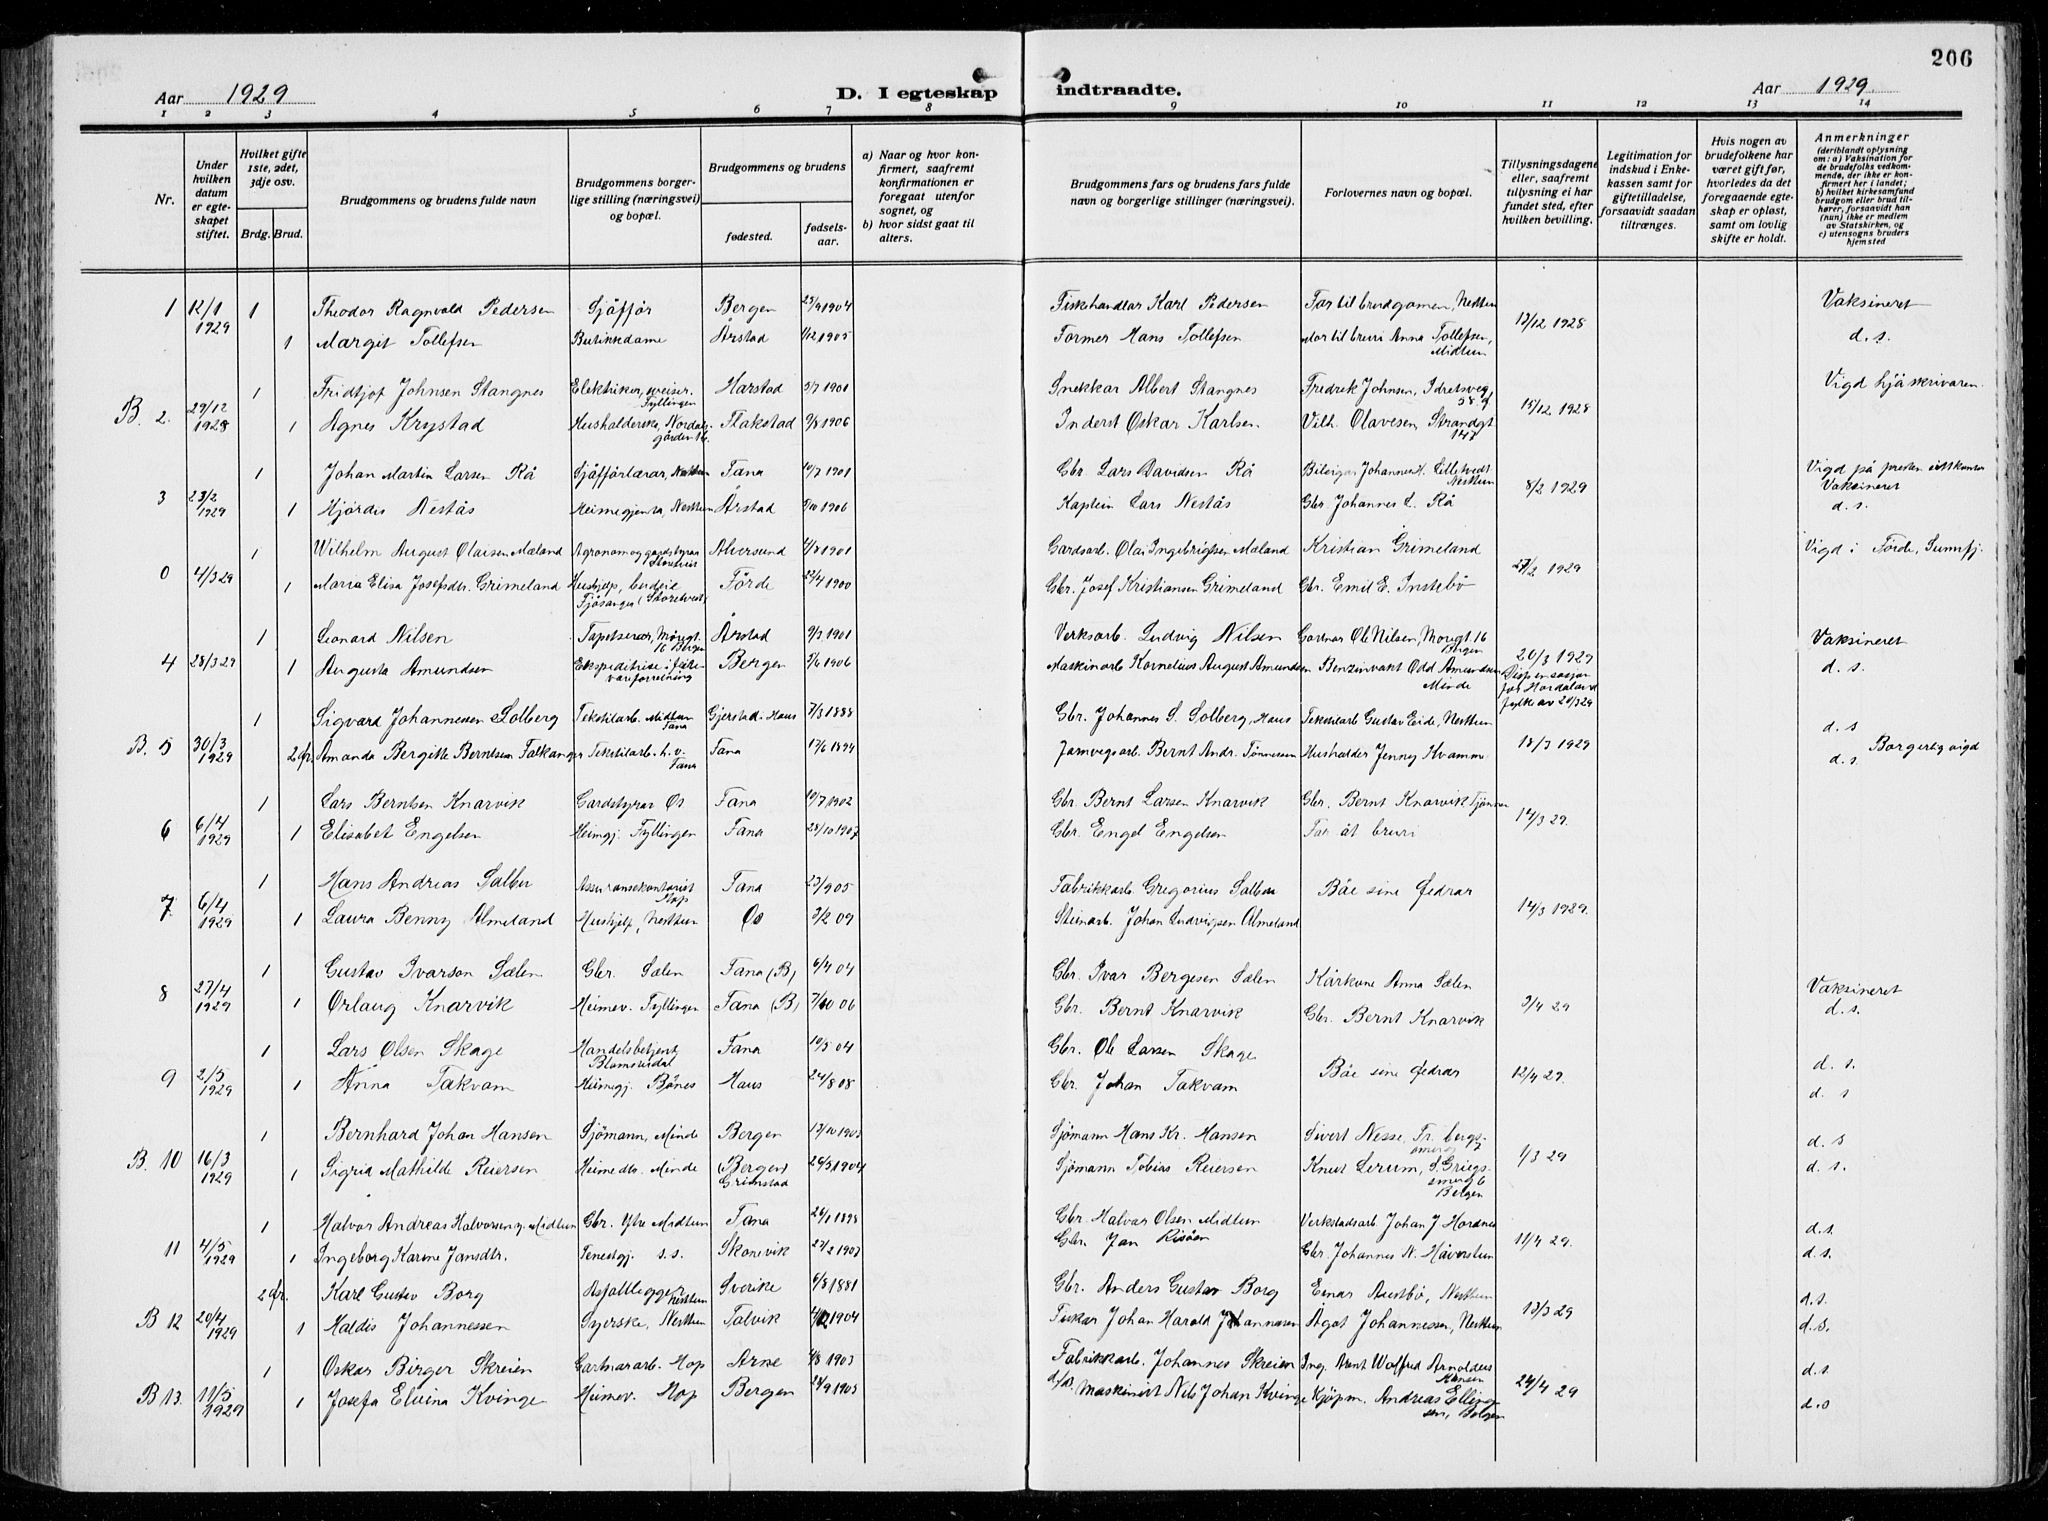 206
Aar 1929
D. I egteskap indtraadte.
Aar 1929
1 2 3 4 5 6 7 8 9 10 11 12 13 14
Nr.
Under hvilken datum er egteskapet stiftet.
Hvilket gifte 1ste, 2det, 3dje osv.
Brdg. Brud.
Brudgommens og brudens fulde navn
Brudgommens borgerlige stilling (næringsvei) og bopæl.
Brudgommens og brudens
fødested. fødselsaar.
a) Naar og hvor konfirmert, saafremt konfirmationen er foregaat utenfor sognet, og
b) hvor sidst gaat til alters.
Brudgommens fars og brudens fars fulde navn og borgerlige stillinger (næringsvei).
Forlovernes navn og bopæl.
Tillysningsdagene eller, saafremt tillysning ei har fundet sted, efter hvilken bevilling.
Legitimation for indskud i Enkekassen samt for giftetilladelse, forsaavidt saadan tiltrænges.
Hvis nogen av brudefolkene har været gift før, hvorledes da det foregaaende egteskap er opløst, samt om lovlig skifte er holdt.
Anmerkninger (deriblandt oplysning om: a) Vaksination for de brudefolks vedkommende, der ikke er konfirmert her i landet; b) hvilket kirkesamfund brudgom eller brud tilhører, forsaavidt han (hun) ikke er medlem av Statskirken, og c) utensogns bruders hjemsted
1 12/1 1929 1 Theodor Ragnvald Pedersen Sjåffør Bergen 25/9 1904 Fiskehandlar Karl Pedersen Far til brudgomen, Nesttun 13/12 1928 Vaksineret
1 Margit Tollefsen Butikkdame Årstad 1/12 1905 Former Hans Tollefsen Mor til bruri Anna Tollefsen, Midtun d. s.
1 Fridtjof Johnsen Stangnes Elektriker, Fyllingen Harstad 5/7 1901 Snekkar Albert Stangnes Fredrik Johnsen, Idretsveg 58 Vigd hjå skrivaren
B. 2. 29/12 1928 1 Agnes Krystad Husholderske, Nordalsgården 16 Flakstad 9/8 1906 Inderst Oskar Karlsen Vilh. Olavesen, Strandgt. 147 15/12 1928
1 Johan Martin Larsen Rå Sjåfførlærar, Nesttun Fana 10/7 1901 Gbr. Lars Davidsen Rå Bileigar Johannes H. Lilletvedt Nesttun Vigd på presten sitt kontor
3 23/2 1929 1 Hjørdis Nestås Heimegjenta, Nesttun Årstad 5/10 1906 Kaptein Lars Nestås Gbr. Johannes L. Rå 8/2 1929 Vaksineret d. s.
1 Wilhelm August Olaisen Mæland Agronom og gardstyrar Storetveit Alversund 4/8 1901 Gardsarb. Olai Ingebrigtsen Mæland Kristian Grimeland Vigd i Førde, Sunnfj.
0 4/3 29 1 Maria Elisa Josefsdr. Grimeland Hushjelp, Fjøsanger (Storetveit) Førde 22/4 1900 Gbr. Josef Kristiansen Grimeland Gbr. Emil E. Instebø 27/2 1929
1 Leonard Nilsen Tapetserar, Møregt. 16 Bergen Årstad 9/3 1901 Verksarb. Ludvig Nilsen Gartnar Ole Nilsen, Møregt 16 Bergen Vaksineret
4 28/3 29 1 Augusta Amundsen Ekspeditrise i fetevareforretning Bergen 5/6 1906 Maskinarb Kornelius August Amundsen Benzinvakt Odd Amundsen Minde 20/3 1929 Dispensasjon for Hordaland fylke av 20/3 29 d. s.
1 Sigvard Johannessen Solberg Tekstilarb. Midttun Fana Gjerstad - Haus 7/3 1888 Gbr. Johannes S. Solberg, Haus Tekstilarb Gustav Eide, Nesttun d. s
B. 5 30/3 1929 2 fr. Amanda Bergitte Berntsen Falkanger Tekstilarb. h. v. Fana Fana 17/6 1894 Jarnvegsarb. Bernt Andr. Tønnessen Husholder Jenny Kvamme 18/3 1929 d. s. Borgerlig vigd
1 Lars Berntsen Knarvik Gardstyrar Os Fana 10/7 1902 Gbr. Bernt Larsen Knarvik Gbr. Bernt Knarvik
6 6/4 1929 1 Elisabet Engelsen Heimgj. Fyllingen Fana 28/10 1907 Gbr. Engel Engelsen Far åt bruri 14/3 29.
1 Hans Andreas Sælber Assuransekontorist Hop Fana 23/9 05 Fabrikkarb Gregorius Sælber Båe sine fedrar
7. 6/4 1929 1 Laura Benny Almeland Hushjelp, Nesttun Os 3/2 09 Steinarb. Johan Ludvigsen Almeland 14/3 1929.
1 Gustav Ivarson Sælen Gbr. Sælen Fana (B) 6/4 04 Gbr. Ivar Bergesen Sælen Kårkone Anna Sælen Vaksineret
8 27/4 1929 1 Ørlaug Knarvik Heimev. Fyllingen Fana (B) 7/10 06 Gbr. Bernt Knarvik Gbr. Bernt Knarvik 3/4 29 d. s.
1 Lars Olsen Skage Handelsbetjent Blomsterdal Fana 10/5 04 Gbr. Ole Larsen Skage Båe sine fedrar d. s.
9 2/5 1929 1 Anna Takvam Heimegj. Bønes Haus 24/8 08 Gbr. Johan Takvam 12/4 29. d. s
1 Bernhard Johan Hansen Sjømann, Minde Bergen 13/10 1903 Sjømann Hans Kr. Hansen Sivert Nesse, d. s
B. 10 16/3 1929 1 Sigrid Mathilde Reiersen Heimedtr. Minde (Bergen) Grimstad 24/3 1904 Sjømann Tobias Reiersen Knut Lerum, 6 Bergen 1/3 29 d. s.
1 Halvor Andreas Halvorsen y. Midtun Gbr. Ytre Midtun Fana 26/1 1898 Gbr. Halvar Olsen Midtun Verkstadsarb. Johan J. Hordnes d. s.
11 4/5 1929 1 Ingeborg Karine Jansdtr. Tenestgj. s. s. Skonevik 27/2 1907 Gbr. Jan Risøen Gbr. Johannes N. Håvarstun 11/4 29. d. s.
2 fr. Karl Gustav Borg Asfaltlegger Nesttun Sverike 6/8 1881 Gbr. Anders Gustav Borg Einar Austbø, Nesttun d. s.
B 12 20/4 1929 1 Haldis Johannessen Syerske, Nesttun Talvik 4/12 1904 Fiskar Johan Harald Johannesen Ågot Johannessen, Nesttun 13/3 29 d. s.
1 Oskar Birger Skreien Gartnararb. Hop Arne 4/8 1903 Fabrikkarb. Johannes Skreien Ing. Arnt Walfred Arnoldus Hansen d. s.
B 13. 11/5 1929 1 Josefa Elvina Kvinge Heimev. Hop Bergen 24/9 1905 Maskinist Nils Johan Kvinge Kjøpm. Andreas Ellingsen, Bergen 24/4 29 d. s